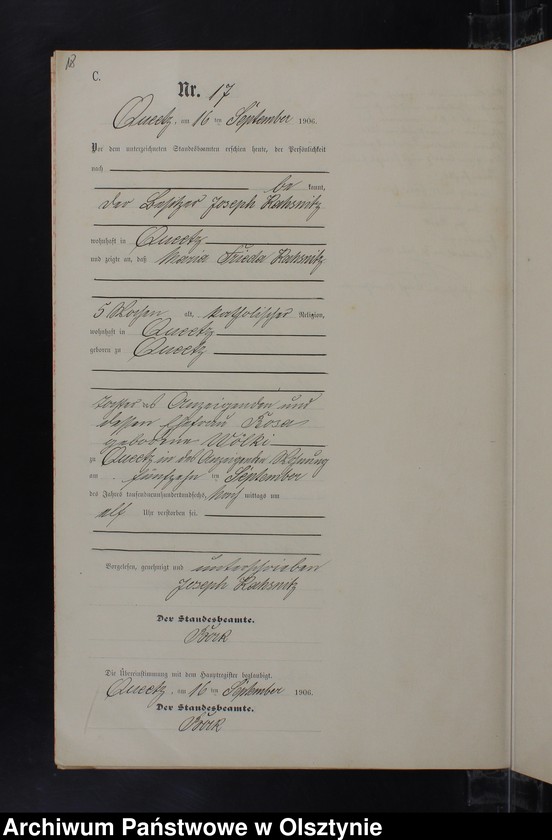 18
C.
Nr. 17
Queetz, am 16 ten September 1906.
Vor dem unterzeichneten Standesbeamten erschien heute, der Persönlichkeit
nach
be kannt,
der Besitzer Joseph Kahsnitz
wohnhaft in Queetz
und zeigte an, daß Maria Frieda Kahsnitz
5 Wochen alt, katholischer Religion,
wohnhaft in Queetz
geboren zu Queetz
Tochter des Anzeigenden und
dessen Ehefrau Rosa
geborene Wölki
zu Queetz in des Anzeigenden Wohnung
am fünfzehn ten September
des Jahres tausendneunhundertundsechs, Nach mittags um
elf Uhr verstorben sei.
Vorgelesen, genehmigt und unterschrieben
Joseph Kahsnitz
Der Standesbeamte.
Die Übereinstimmung mit dem Hauptregister beglaubigt.
Queetz, am 16 ten September 1906.
Der Standesbeamte.
Archiwum Państwowe w Olsztynie